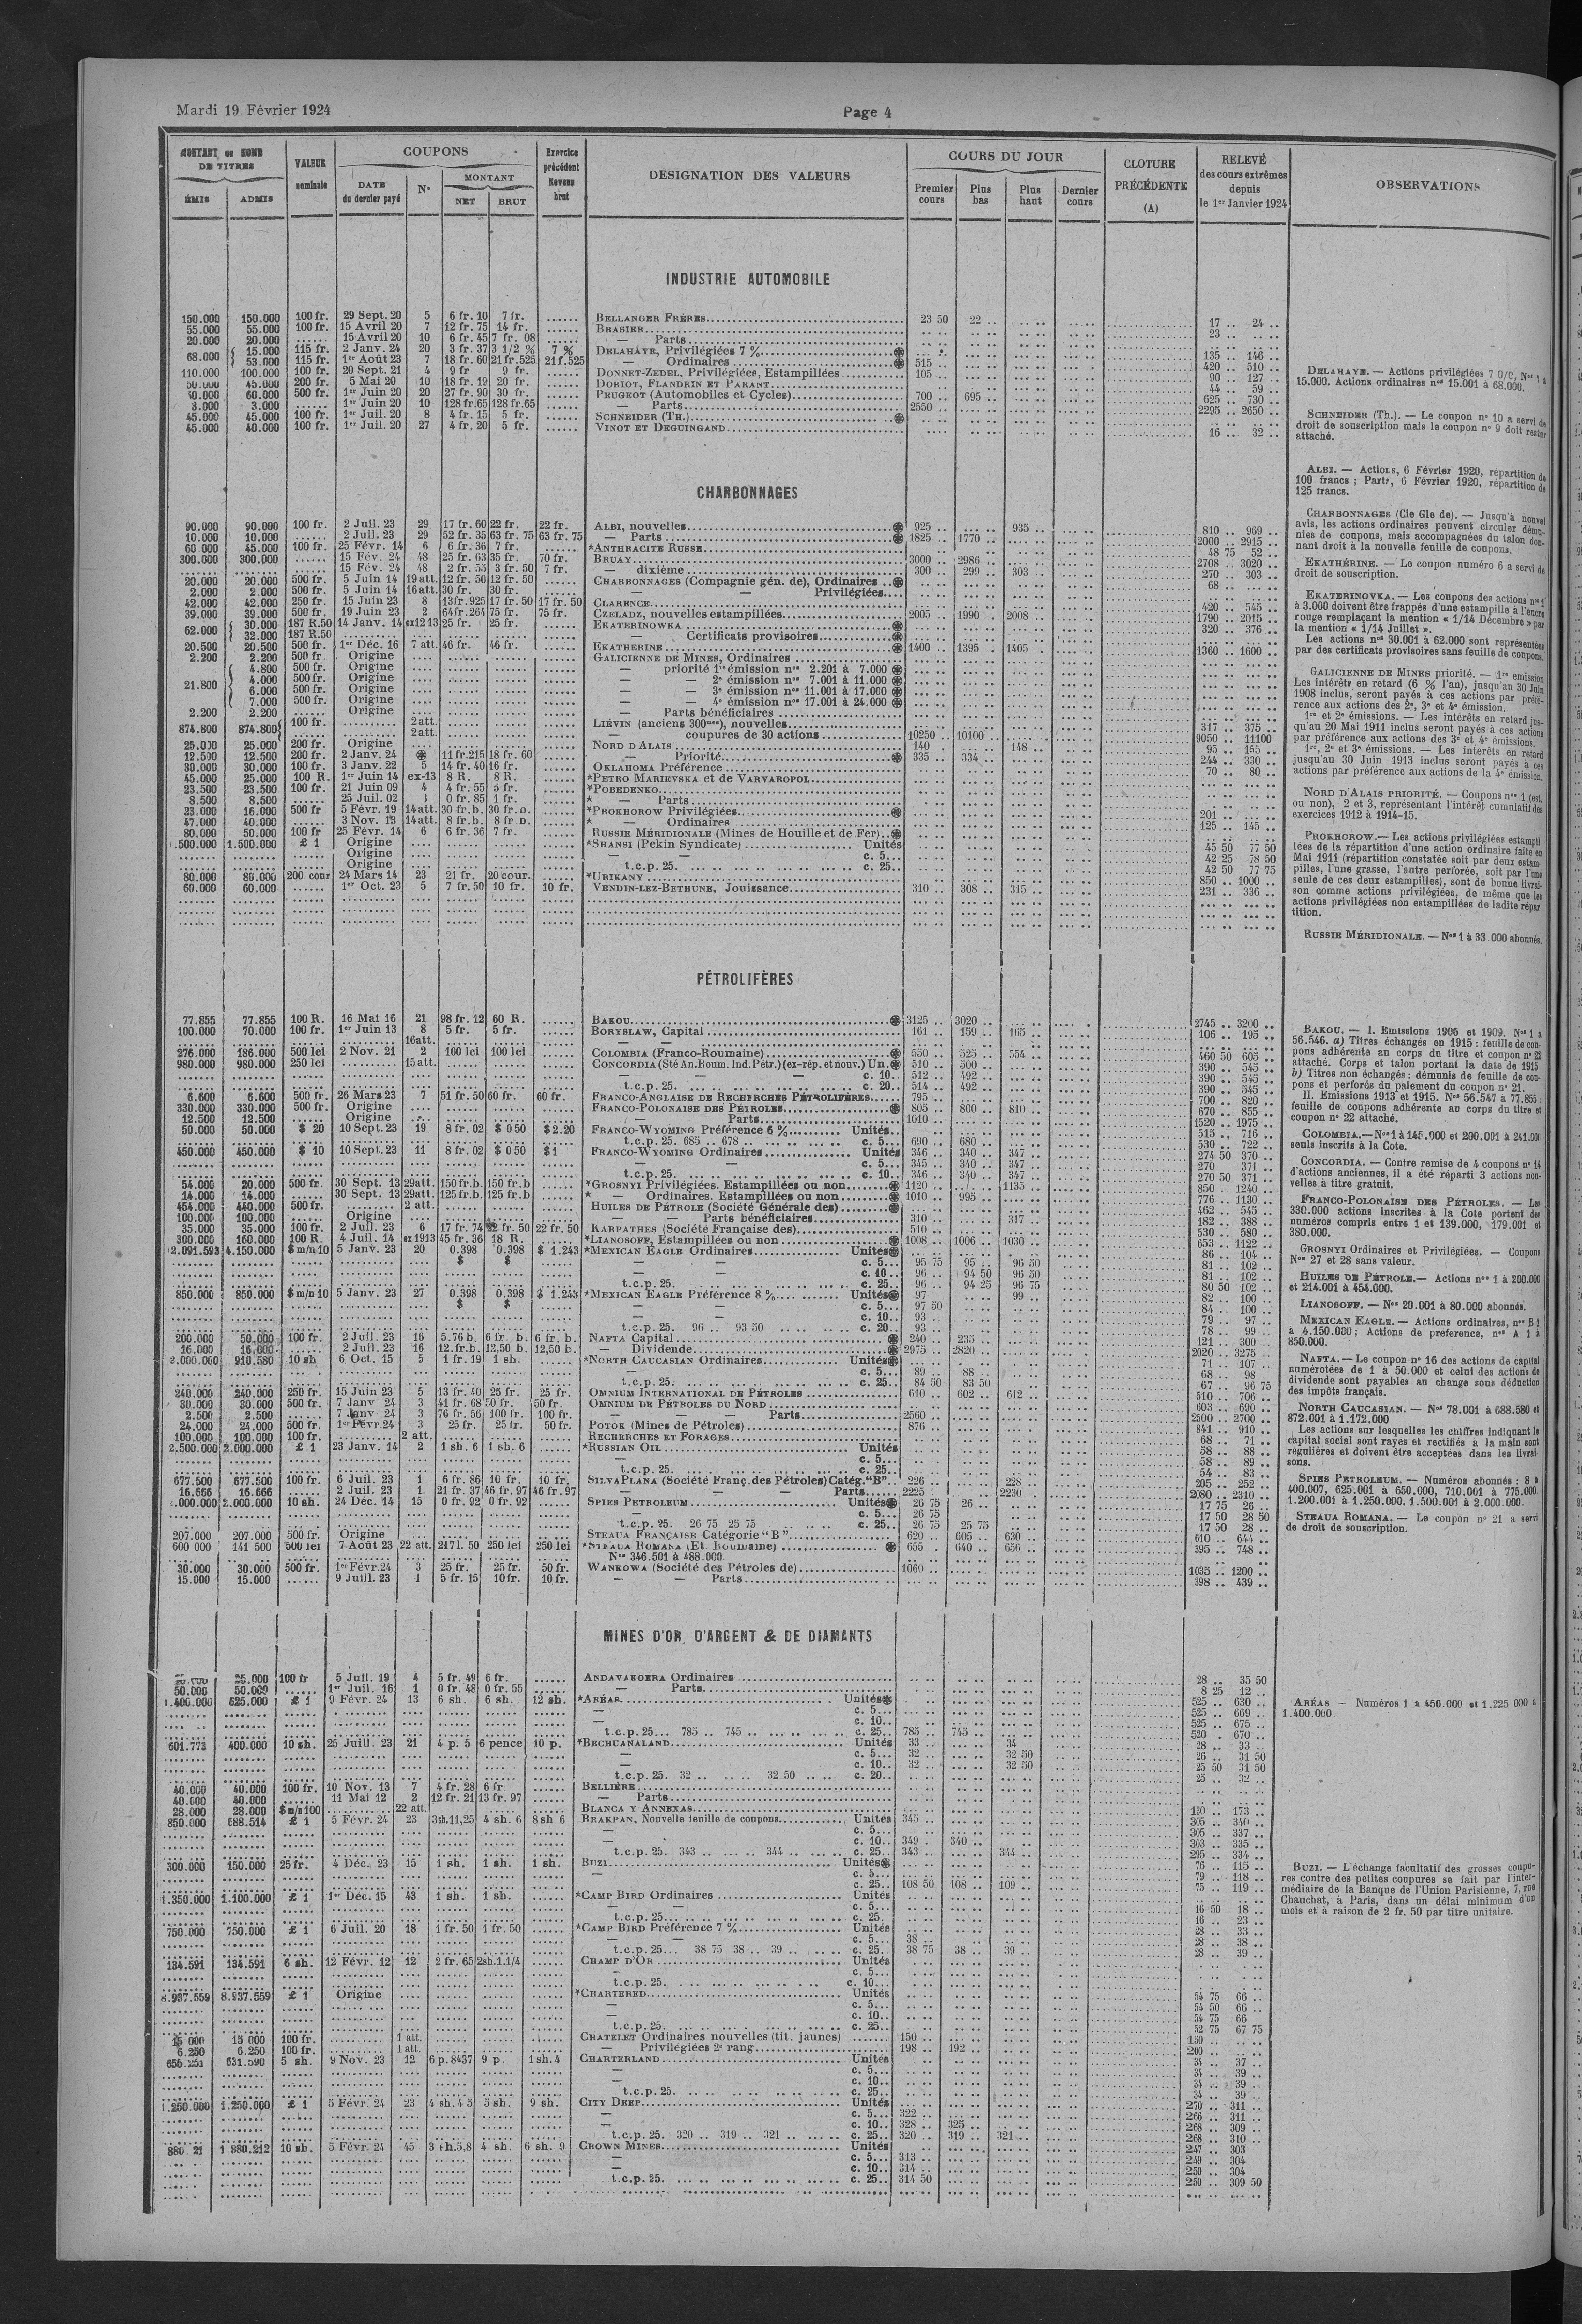 Mardi 19 Février 1924
Page 4
MONTANT ou NOMB
DE TITRES
ÉMIS ADMIS
VALEUR
nominale
COUPONS
DATE
du dernier payé
N°
MONTANT
NET BRUT
Exercice
précédent
Revenu
brut
DESIGNATION DES VALEURS
COURS DU JOUR
Premier cours Plus bas Plus haut Dernier cours
CLOTURE
PRÉCÉDENTE
(A)
RELEVÉ
des cours extrêmes
depuis
le 1er Janvier 1924
OBSERVATIONS
INDUSTRIE AUTOMOBILE
150.000 150.000 100 fr. 29 Sept. 20 5 6 fr. 10 7 fr. BELLANGER FRÈRES 23 50 22 .. 17 .. 24 ..
55.000 55.000 100 fr. 15 Avril 20 7 12 fr. 75 14 fr. BRASIER 23 ..
20.000 20.000 15 Avril 20 10 6 fr. 45 7 fr. 08 — Parts
68.000 15.000 115 fr. 2 Janv. 24 20 3 fr. 37 3 1/2 % 7 % DELAHAYE, Privilégiées 7 % 135 .. 146 ..
53.000 115 fr. 1er Août 23 7 18 fr. 60 21 fr. 525 21 f. 525 — Ordinaires 515 .. 420 .. 510 ..
110.000 100.000 100 fr. 20 Sept. 21 4 9 fr 9 fr. DONNET-ZEDEL, Privilégiées, Estampillées 105 .. 90 .. 127 ..
50.000 45.000 200 fr. 5 Mai 20 10 18 fr. 19 20 fr. DORIOT, FLANDRIN ET PARANT 44 .. 59 ..
60.000 500 fr. 1er Juin 20 20 27 fr. 90 30 fr. PEUGEOT (Automobiles et Cycles) 700 .. 695 .. 625 .. 730 ..
3.000 3.000 1er Juin 20 10 128 fr. 65 128 fr. 65 — Parts 2550 .. 2295 .. 2650 ..
45.000 45.000 100 fr. 1er Juil. 20 8 4 fr. 15 5 fr. SCHNEIDER (TH.)
45.000 40.000 100 fr. 1er Juil. 20 27 4 fr. 20 5 fr. VINOT ET DEGUINGAND 16 .. 32 ..
DELAHAYE. — Actions privilégiées 7 0/0, Nos 1 à
15.000. Actions ordinaires nos 15.001 à 68.000.
SCHNEIDER (Th.). — Le coupon n° 10 a servi de
droit de souscription mais le coupon n° 9 doit rester
attaché.
CHARBONNAGES
90.000 90.000 100 fr. 2 Juil. 23 29 17 fr. 60 22 fr. 22 fr. ALBI, nouvelles 925 .. 935 .. 810 .. 969 ..
10.000 10.000 2 Juil. 23 29 52 fr. 35 63 fr. 75 63 fr. 75 — Parts 1825 .. 1770 .. 2000 .. 2915 ..
60 000 45.000 100 fr. 25 Févr. 14 6 6 fr. 36 7 fr. *ANTHRACITE RUSSE 48 75 52 ..
300.000 300.000 15 Fév. 24 48 25 fr. 63 35 fr. 70 fr. BRUAY 3000 .. 2986 .. 2708 .. 3020 ..
15 Fév. 24 48 2 fr. 55 3 fr. 50 7 fr. — dixième 300 .. 299 .. 303 .. 270 .. 303 ..
20.000 20.000 500 fr. 5 Juin 14 19 att. 12 fr. 50 12 fr. 50 CHARBONNAGES (Compagnie gén. de), Ordinaires 68 ..
2.000 2.000 500 fr. 5 Juin 14 16 att. 30 fr. 30 fr. — — Privilégiées
42.000 42.000 250 fr. 15 Juin 23 8 13 fr. 925 17 fr. 50 17 fr. 50 CLARENCE 420 .. 545 ..
39.000 39.000 500 fr. 19 Juin 23 2 64 fr. 264 75 fr. 75 fr. CZELADZ, nouvelles estampillées 2005 .. 1990 .. 2008 .. 1790 .. 2015 ..
62.000 30.000 187 R.50 14 Janv. 14 ex 12 13 25 fr. 25 fr. EKATERINOWKA 320 .. 376 ..
32.000 187 R.50 — Certificats provisoires
20.500 20.500 500 fr. 1er Déc. 16 7 att. 46 fr. 46 fr. EKATHERINE 1400 .. 1395 .. 1405 .. 1360 .. 1600 ..
2.200 2.200 500 fr. Origine GALICIENNE DE MINES, Ordinaires
21.800 4.800 500 fr. Origine — priorité 1re émission nos 2.201 à 7.000
4.000 500 fr. Origine — — 2e émission nos 7.001 à 11.000
6.000 500 fr. Origine — — 3e émission nos 11.001 à 17.000
7.000 500 fr. Origine — — 4e émission nos 17.001 à 24.000
2.200 2.200 Origine — Parts bénéficiaires
874.800 874.800 100 fr. 2 att. LIÉVIN (anciens 300mes), nouvelles 317 .. 375 ..
2 att. — coupures de 30 actions 10250 .. 10100 .. 9050 .. 11100
25.000 25.000 200 fr. Origine NORD D'ALAIS 140 .. 148 .. 95 .. 155 ..
12.500 12.500 200 fr. 2 Janv. 24 11 fr. 215 18 fr. 60 — Priorité 335 .. 334 .. 244 .. 330 ..
30.000 30.000 100 fr. 3 Janv. 22 5 14 fr. 40 16 fr. OKLAHOMA Préférence 70 .. 80 ..
45.000 25.000 100 R. 1er Juin 14 ex-13 8 R. 8 R. *PETRO MARIEVSKA et de VARVAROPOL
23.500 23.500 100 fr. 21 Juin 09 4 4 fr. 55 5 fr. *POBEDENKO
8.500 8.500 25 Juil. 02 0 fr. 85 1 fr. * — Parts
23.000 16.000 500 fr 5 Févr. 19 14 att. 30 fr. b. 30 fr. b. *PROKHOROW Privilégiées 201 ..
47.000 40.000 3 Nov. 13 14 att. 8 fr. b. 8 fr b. * — Ordinaires 125 .. 145 ..
80.000 50.000 100 fr 25 Févr. 14 6 6 fr. 36 7 fr. RUSSIE MÉRIDIONALE (Mines de Houille et de Fer)
1.500.000 1.500.000 £ 1 Origine *SHANSI (Pekin Syndicate) Unités 45 50 77 50
Origine — — c. 5 42 25 78 50
Origine t.c.p. 25. c. 25 42 50 77 75
80.000 86.000 200 cour 24 Mars 14 23 21 fr. 20 cour. *URIKANY 850 .. 1000 ..
60.000 60.000 1er Oct. 23 5 7 fr. 50 10 fr. 10 fr. VENDIN-LEZ-BETHUNE, Jouissance 310 .. 308 .. 315 .. 231 .. 336 ..
ALBI. — Actions, 6 Février 1920, répartition de
100 francs ; Parts, 6 Février 1920, répartition de
125 francs.
CHARBONNAGES (Cie Gle de). — Jusqu'à nouvel
avis, les actions ordinaires peuvent circuler démunies
de coupons, mais accompagnées du talon donnant
droit à la nouvelle feuille de coupons.
EKATHÉRINE. — Le coupon numéro 6 a servi de
droit de souscription.
EKATERINOVKA. — Les coupons des actions nos 1
à 3.000 doivent être frappés d'une estampille à l'encre
rouge remplaçant la mention « 1/14 Décembre » par
la mention « 1/14 Juillet ».
Les actions nos 30.001 à 62.000 sont représentées
par des certificats provisoires sans feuille de coupons.
GALICIENNE DE MINES priorité. — 1re emission
Les intérêts en retard (6 % l'an), jusqu'au 30 Juin
1908 inclus, seront payés à ces actions par préférence
aux actions des 2e, 3e et 4e émission.
1re et 2e émissions. — Les intérêts en retard jusqu'au
20 Mai 1911 inclus seront payés à ces actions
par préférence aux actions des 3e et 4e émissions.
1re, 2e et 3e émissions. — Les intérêts en retard
jusqu'au 30 Juin 1913 inclus seront payés à ces
actions par préférence aux actions de la 4e émission.
NORD D'ALAIS PRIORITÉ. — Coupons nos 1 (est.
ou non), 2 et 3, représentant l'intérêt cumulatif des
exercices 1912 à 1914-15.
PROKHOROW. — Les actions privilégiées estampillées
de la répartition d'une action ordinaire faite en
Mai 1911 (répartition constatée soit par deux estampilles,
l'une grasse, l'autre perforée, soit par l'une
seule de ces deux estampilles), sont de bonne livraison
comme actions privilégiées, de même que les
actions privilégiées non estampillées de ladite répartition.
RUSSIE MÉRIDIONALE. — Nos 1 à 33.000 abonnés.
PÉTROLIFÈRES
77.855 77.855 100 R. 16 Mai 16 21 98 fr. 12 60 R. BAKOU 3125 .. 3020 .. 2745 .. 3200 ..
100.000 70.000 100 fr. 1er Juin 13 8 5 fr. 5 fr. BORYSLAW, Capital 161 .. 159 .. 165 .. 106 .. 195 ..
16 att. — —
276.000 186.000 500 lei 2 Nov. 21 2 100 lei 100 lei COLOMBIA (Franco-Roumaine) 550 .. 525 .. 554 .. 460 50 605 ..
980.000 980.000 250 lei 15 att. CONCORDIA (Sté An. Roum. Ind. Pétr.) (ex-rép. et nouv.) Un. 510 .. 500 .. 390 .. 545 ..
— — c. 10 512 .. 492 .. 390 .. 545 ..
t.c.p. 25. c. 20 514 .. 492 .. 390 .. 545 ..
6.600 6.600 500 fr. 26 Mars 23 7 51 fr. 50 60 fr. 60 fr. FRANCO-ANGLAISE DE RECHERCHES PÉTROLIFÈRES 795 .. 700 .. 820 ..
330.000 330.000 500 fr. Origine FRANCO-POLONAISE DES PÉTROLES 805 .. 800 .. 810 .. 670 .. 855 ..
12.500 12.500 Origine — Parts 1610 .. 1520 .. 1975 ..
50.000 50.000 $ 20 10 Sept. 23 19 8 fr. 02 $ 0 50 $ 2.20 FRANCO-WYOMING Préférence 6 % Unités 515 .. 716 ..
t.c.p. 25. 685 .. 678 .. c. 5 690 .. 680 .. 530 .. 722 ..
450.000 450.000 $ 10 10 Sept. 23 11 8 fr. 02 $ 0 50 $ 1 FRANCO-WYOMING Ordinaires Unités 346 .. 340 .. 347 .. 274 50 370 ..
— — c. 5 345 .. 340 .. 347 .. 270 371 ..
t.c.p. 25. c. 10 346 .. 340 .. 347 .. 270 50 371 ..
54.000 20.000 500 fr. 30 Sept. 13 29 att. 150 fr. b. 150 fr. b *GROSNYI Privilégiées. Estampillées ou non 1120 .. 1135 .. 850 .. 1240 ..
14.000 14.000 30 Sept. 13 29 att. 125 fr. b. 125 fr. b * — Ordinaires. Estampillées ou non 1010 .. 995 .. 776 .. 1130 ..
454.000 440.000 500 fr. 2 att. HUILES DE PÉTROLE (Société Générale des) 462 .. 545 ..
100.000 100.000 Origine — — Parts bénéficiaires 310 .. 317 .. 182 .. 388 ..
35.000 35.000 100 fr. 2 Juil. 23 6 17 fr. 74 22 fr. 50 22 fr. 50 KARPATHES (Société Française des) 510 .. 530 .. 580 ..
300.000 160.000 100 R. 4 Juil. 14 ex 1913 45 fr. 36 18 R. *LIANOSOFF, Estampillées ou non 1008 .. 1006 .. 1030 .. 653 .. 1122 ..
2.091.593 4.150.000 $ m/n 10 5 Janv. 23 20 0.398 0.398 $ 1.243 *MEXICAN EAGLE Ordinaires Unités 86 .. 104 ..
$ $ — — c. 5 95 75 95 .. 96 50 81 .. 102 ..
— — c. 10 96 .. 94 50 96 50 81 .. 102 ..
t.c.p. 25. c. 25 96 .. 94 25 96 75 80 50 102 ..
850.000 850.000 $ m/n 10 5 Janv. 23 27 0.398 0.398 $ 1.243 *MEXICAN EAGLE Préférence 8 % Unités 97 99 .. 82 .. 100 ..
$ $ — — c. 5 97 50 84 .. 100 ..
— — c. 10 93 .. 79 .. 97 ..
t.c.p. 25. 96 .. 93 50 c. 20 93 .. 78 .. 99 ..
200.000 50.000 100 fr. 2 Juil. 23 16 5.76 b. 6 fr. b. 6 fr. b. NAFTA Capital 240 .. 235 .. 121 .. 300 ..
16.000 16.000 2 Juil. 23 16 12.fr.b. 12,50 b. 12,50 b. — Dividende 2975 .. 2820 .. 2020 .. 3275 ..
2.000.000 910.580 10 sh 6 Oct. 15 5 1 fr. 19 1 sh. *NORTH CAUCASIAN Ordinaires Unités 71 .. 107 ..
— — c. 5 89 .. 88 .. 68 .. 98
t.c.p. 25. c. 25 84 50 83 50 67 .. 96 75
240.000 240.000 250 fr. 15 Juin 23 5 13 fr. 40 25 fr. 25 fr. OMNIUM INTERNATIONAL DE PÉTROLES 610 .. 602 .. 612 .. 510 .. 706 ..
30.000 30.000 500 fr. 7 Janv 24 3 41 fr. 68 50 fr. 50 fr. OMNIUM DE PÉTROLES DU NORD 603 .. 690 ..
2.500 2.500 7 Janv 24 3 76 fr. 56 100 fr. 100 fr. — — Parts 2560 .. 2500 .. 2700 ..
24.000 24.000 500 fr. 1er Févr. 24 3 25 fr. 25 fr. 50 fr. POTOK (Mines de Pétroles) 876 .. 841 .. 910 ..
100.000 100.000 100 fr. 2 att. RECHERCHES ET FORAGES 68 .. 71 ..
2.500.000 2.000.000 £ 1 23 Janv. 14 2 1 sh. 6 1 sh. 6 *RUSSIAN OIL Unités 58 .. 88 ..
— — c. 5 58 .. 89 ..
t.c.p. 25. c. 25 54 .. 83 ..
677.500 677.500 100 fr. 6 Juil. 23 1 6 fr. 86 10 fr. 10 fr. SILVA PLANA (Société Franç. des Pétroles) Catég. "B" 226 .. 228 .. 205 .. 252 ..
16.666 16.666 2 Juil. 23 1 21 fr. 37 46 fr. 97 46 fr. 97 — — Parts 2225 .. 2230 .. 2080 .. 2310 ..
2.000.000 2.000.000 10 sh. 24 Déc. 14 15 0 fr. 92 0 fr. 92 SPIES PETROLEUM Unités 26 75 26 .. 17 75 26 ..
— c. 5 26 75 17 50 28 50
t.c.p. 25. 26 75 25 75 c. 25 26 75 25 75 17 50 28 ..
207.000 207.000 500 fr. Origine STEAUA FRANÇAISE Catégorie "B" 620 .. 605 .. 630 .. 610 .. 644 ..
600 000 141 500 500 lei 7 Août 23 22 att. 217 l. 50 250 lei 250 lei *STEAUA ROMANA (Et. Roumaine) 655 .. 640 .. 656 .. 395 .. 748 ..
Nos 346.501 à 488.000.
30.000 30.000 500 fr. 1er Févr. 24 3 25 fr. 25 fr. 50 fr. WANKOWA (Société des Pétroles de) 1060 .. 1035 .. 1200 ..
15.000 15.000 9 Juill. 23 1 5 fr. 15 10 fr. 10 fr. — — Parts 398 .. 439 ..
BAKOU. — I. Emissions 1905 et 1909. Nos 1 à
56.546. a) Titres échangés en 1915 : feuille de coupons
adhérente au corps du titre et coupon n° 22
attaché. Corps et talon portant la date de 1915
b) Titres non échangés : démunis de feuille de coupons
et perforés du paiement du coupon n° 21.
II. Emissions 1913 et 1915. Nos 56.547 à 77.855 :
feuille de coupons adhérente au corps du titre et
coupon n° 22 attaché.
COLOMBIA. — Nos 1 à 145.000 et 200.001 à 241.000
seuls inscrits à la Cote.
CONCORDIA. — Contre remise de 4 coupons n° 14
d'actions anciennes, il a été réparti 3 actions nouvelles
à titre gratuit.
FRANCO-POLONAISE DES PÉTROLES. — Les
330.000 actions inscrites à la Cote portent des
numéros compris entre 1 et 139.000, 179.001 et
380.000.
GROSNYI Ordinaires et Privilégiées. — Coupons
Nos 27 et 28 sans valeur.
HUILES DE PÉTROLE. — Actions nos 1 à 200.000
et 214.001 à 454.000.
LIANOSOFF. — Nos 20.001 à 80.000 abonnés.
MEXICAN EAGLE. — Actions ordinaires, nos B 1
à 4.150.000 ; Actions de preference, nos A 1 à
850.000.
NAFTA. — Le coupon n° 16 des actions de capital
numérotées de 1 à 50.000 et celui des actions de
dividende sont payables au change sous déduction
des impôts français.
NORTH CAUCASIAN. — Nos 78.001 à 688.580 et
872.001 à 1.172.000
Les actions sur lesquelles les chiffres indiquant le
capital social sont rayés et rectifiés à la main sont
régulières et doivent être acceptées dans les livraisons.
SPIES PETROLEUM. — Numéros abonnés : 8 à
400.007, 625.001 à 650.000, 710.001 à 775.000
1.200.001 à 1.250.000, 1.500.001 à 2.000.000.
STEAUA ROMANA. — Le coupon n° 21 a servi
de droit de souscription.
MINES D'OR, D'ARGENT & DE DIAMANTS
25.000 100 fr 5 Juil. 19 4 5 fr. 49 6 fr. ANDAVAKOERA Ordinaires 28 .. 35 50
50.000 50.000 1er Juil. 16 1 0 fr. 48 0 fr. 55 — Parts 8 25 12 ..
1.400.000 625.000 £ 1 9 Févr. 24 13 6 sh. 6 sh. 12 sh. *ARÉAS Unités 525 .. 630 ..
— c. 5 525 .. 669 ..
— c. 10 525 .. 675 ..
t.c.p. 25 785 .. 745 .. c. 25 785 .. 745 .. 520 .. 670 ..
601.773 400.000 10 sh. 25 Juill. 23 21 4 p. 5 6 pence 10 p. *BECHUANALAND Unités 33 .. 34 28 .. 33 ..
— c. 5 32 .. 32 50 26 .. 31 50
— c. 10 32 .. 32 50 25 50 31 50
t.c.p. 25. 32 .. 32 50 .. c. 20 25 .. 32 ..
40.000 40.000 100 fr. 10 Nov. 13 7 4 fr. 28 6 fr. BELLIÈRE
40.000 40.000 11 Mai 12 2 12 fr. 21 13 fr. 97 — Parts
28.000 28.000 $ m/n 100 22 att. BLANCA Y ANNEXAS 130 .. 173 ..
850.000 688.514 £ 1 5 Févr. 24 23 3sh.11,25 4 sh. 6 8 sh 6 BRAKPAN, Nouvelle feuille de coupons Unités 345 .. 305 .. 340 ..
— c. 5 305 .. 337 ..
— c. 10 349 .. 340 .. 303 .. 335 ..
t.c.p. 25. 343 .. 344 .. c. 25 343 .. 344 .. 295 .. 334 ..
300.000 150.000 25 fr. 4 Déc. 23 15 1 sh. 1 sh. 1 sh. BUZI Unités 76 .. 115 ..
— c. 5 79 .. 118 ..
c. 25 108 50 108 .. 109 .. 75 .. 119 ..
1.350.000 1.100.000 £ 1 1er Déc. 15 43 1 sh. 1 sh. *CAMP BIRD Ordinaires Unités
— — c. 5 16 50 18 ..
t.c.p. 25 c. 25 16 .. 23 ..
750.000 750.000 £ 1 6 Juil. 20 18 1 fr. 50 1 fr. 50 *CAMP BIRD Préférence 7 % Unités 28 .. 33 ..
— — c. 5 38 .. 28 .. 38 ..
t.c.p. 25 38 75 38 .. 39 .. c. 25 38 75 38 .. 39 .. 28 .. 39 ..
134.591 134.591 6 sh. 12 Févr. 12 12 2 fr. 65 2sh.1.1/4 CHAMP D'OR Unités
— c. 5
t.c.p. 25. c. 10
8.937.559 8.937.559 £ 1 Origine *CHARTERED Unités 54 75 66 ..
— c. 5 54 50 66 ..
— c. 10 54 75 66
t.c.p. 25. c. 25 52 75 67 75
15 000 15 000 100 fr. 1 att. CHATELET Ordinaires nouvelles (tit. jaunes) 150 .. 150 ..
6.250 6.250 100 fr. 1 att. — Privilégiées 2e rang 198 .. 192 .. 200 ..
656.251 631.590 5 sh. 9 Nov. 23 12 6 p. 8437 9 p. 1 sh. 4 CHARTERLAND Unités 34 .. 37 ..
— c. 5 34 .. 39 ..
— c. 10 34 .. 39 ..
t.c.p. 25. c. 25 34 .. 39 ..
1.250.000 1.250.000 £ 1 5 Févr. 24 23 4 sh. 4 5 5 sh. 9 sh. CITY DEEP Unités 270 .. 311 ..
— c. 5 322 .. 266 .. 311 ..
— c. 10 328 .. 325 268 .. 309 ..
t.c.p. 25. 320 .. 319 .. 321 .. c. 25 320 .. 319 .. 321 .. 268 .. 310 ..
880 21 1 880.212 10 sh. 5 Févr. 24 45 3 sh.5,8 4 sh. 6 sh. 9 CROWN MINES Unités 247 .. 303
— c. 5 313 .. 249 .. 304
— c. 10 314 .. 250 .. 304
t.c.p. 25. c. 25 314 50 250 .. 309 50
ARÉAS — Numéros 1 à 450.000 et 1.225 000 à
1.400.000
BUZI. — L'échange facultatif des grosses coupures
contre des petites coupures se fait par l'intermédiaire
de la Banque de l'Union Parisienne, 7, rue
Chauchat, à Paris, dans un délai minimum d'un
mois et à raison de 2 fr. 50 par titre unitaire.